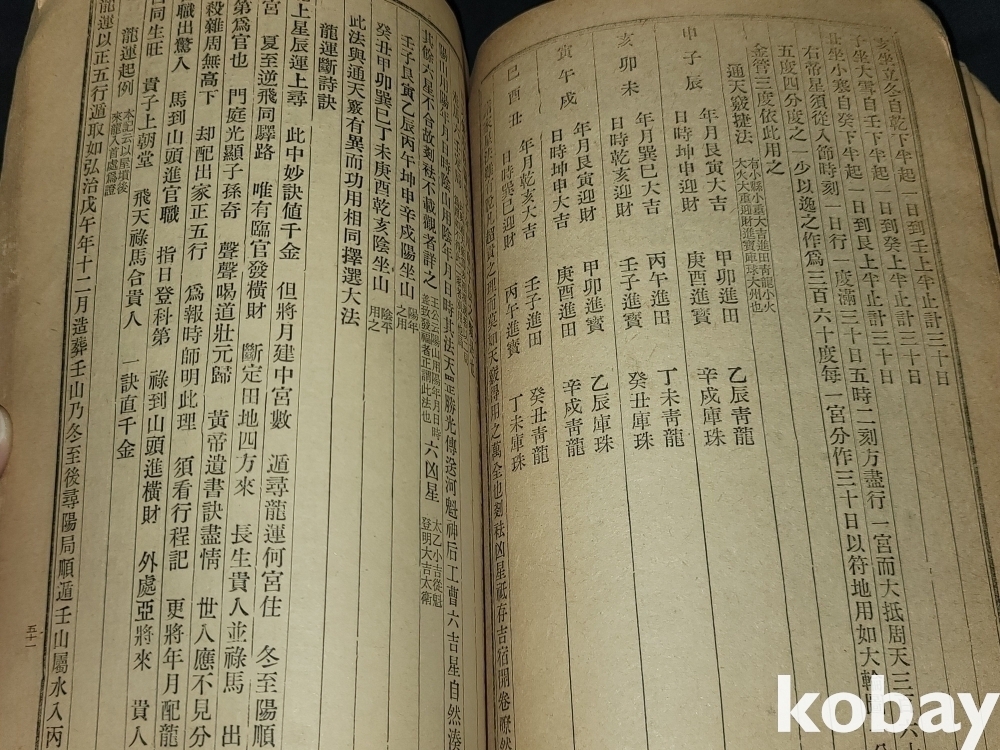 亥坐立冬自乾下半起一日到壬上半止計三十日
子坐大雪自壬下半起一日到癸上半止計三十日
丑坐小寒自癸下半起一日到艮上半止計三十日
右帝星須從入節時刻一日行一度滿三十日五時二刻方盡行一宮而大抵周天三百六
五度四分度之一少以逸之作爲三百六十度每一宮分作三十日以符地用如大輪圖
金管三度依此用之
通天竅捷法
有小縣小重大吉進田青龍小火
大火大重迎財進寶庫珠大州也
申子辰 年月艮寅大吉 甲卯進寶 乙辰青龍
日時坤申迎財 庚酉進寶 辛戌庫珠
亥卯未 年月巽巳大吉 丙午進田 丁未青龍
日時乾亥迎財 壬子進寶 癸丑庫珠
寅午戌 年月坤申大吉 甲卯進寶 乙辰庫珠
日時艮寅迎財 庚酉進田 辛戌青龍
巳酉丑 年月乾亥大吉 壬子進田 癸丑青龍
日時巽巳迎財 丙午進寶 丁未庫珠
之理而莫如天竅得用之萬全也刻袪凶星祗存吉宿開卷瞭然
陽山用陽年月日時陰山用陰年月日時此法天罡勝光傳送河魁神后工曹六吉星自然湊
其餘六星不合故刻袪不載觀者詳之
王公云陽山用陽年月日時
蓋致發福者正謂此法也
六凶星
太乙小吉從魁
登明大吉太衝
壬子艮寅乙辰丙午坤申辛戌陽坐山
陽年
之用
癸丑甲卯巽巳丁未庚酉乾亥陰坐山
陰平
用之
此法與通天竅有異而功用相同擇選大法
龍運斷詩訣
上星辰運上尋 此中妙訣値千金 但將月建中宮數 遁尋龍運何宮住 冬至陽順
宮 夏至逆飛同驛路 唯有臨官發橫財 斷定田地四方來 長生貴人並祿馬 出
第爲官也 門庭光顯子孫奇 聲聲喝道壯元歸 黃帝遺書訣盡情 世人應不見分
殺雜周無高下 却配出家正五行 爲報時師明此理 須看行程記 更將年月配龍
職出驚人 馬到山頭進官職 指日登科第 祿到山頭進橫財 外處亞將來 貴人
合同生旺 貴子上朝堂 飛天祿馬合貴人 一訣直千金
龍運起例
本記云以屋墳後
來龍入首處爲證
龍運以正五行遁取如弘治戊午年十二月造葬壬山乃冬至後尋陽局順遁壬山屬水入丙
五十一
kobay